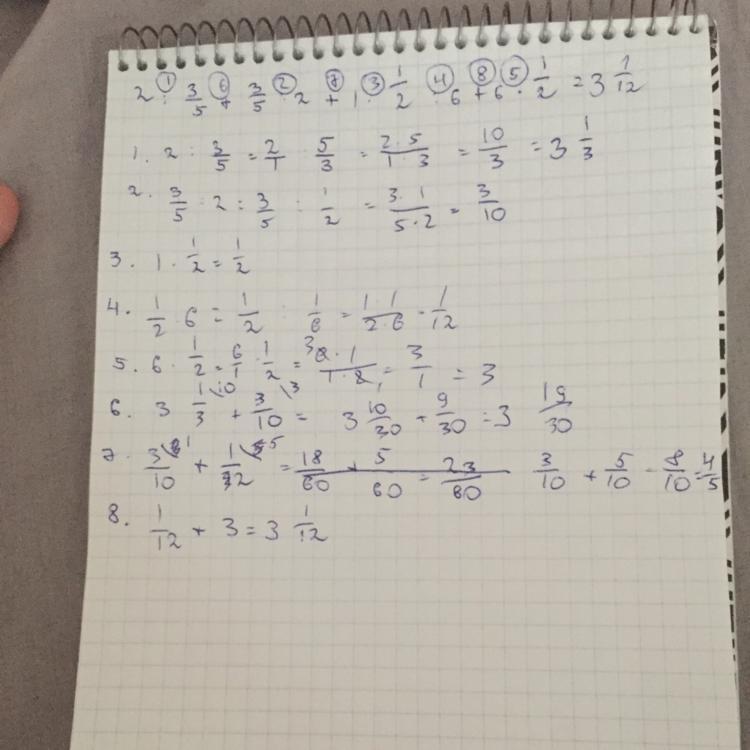 2 : 3/5 + 3/5 : 2 + 1 · 1/2 : 6 + 6 · 1/2 = 3 1/12
1. 2 : 3/5 = 2/1 · 5/3 = 2·5/1·3 = 10/3 = 3 1/3
2. 3/5 : 2 = 3/5 : 1/2 = 3·1/5·2 = 3/10
3. 1 · 1/2 = 1/2
4. 1/2 · 6 = 1/2 : 1/6 = 1·1/2·6 = 1/12
5. 6 · 1/2 = 6/1 · 1/2 = = 3/1 = 3
6. 3 1/3 \10 + 3/10 \3 = 3 10/30 + 9/30 = 3 19/30
7. 3/10 + = 18/60 + 5/60 = 23/60 3/10 + 5/10 = 8/10 = 4/5
8. 1/12 + 3 = 3 1/12